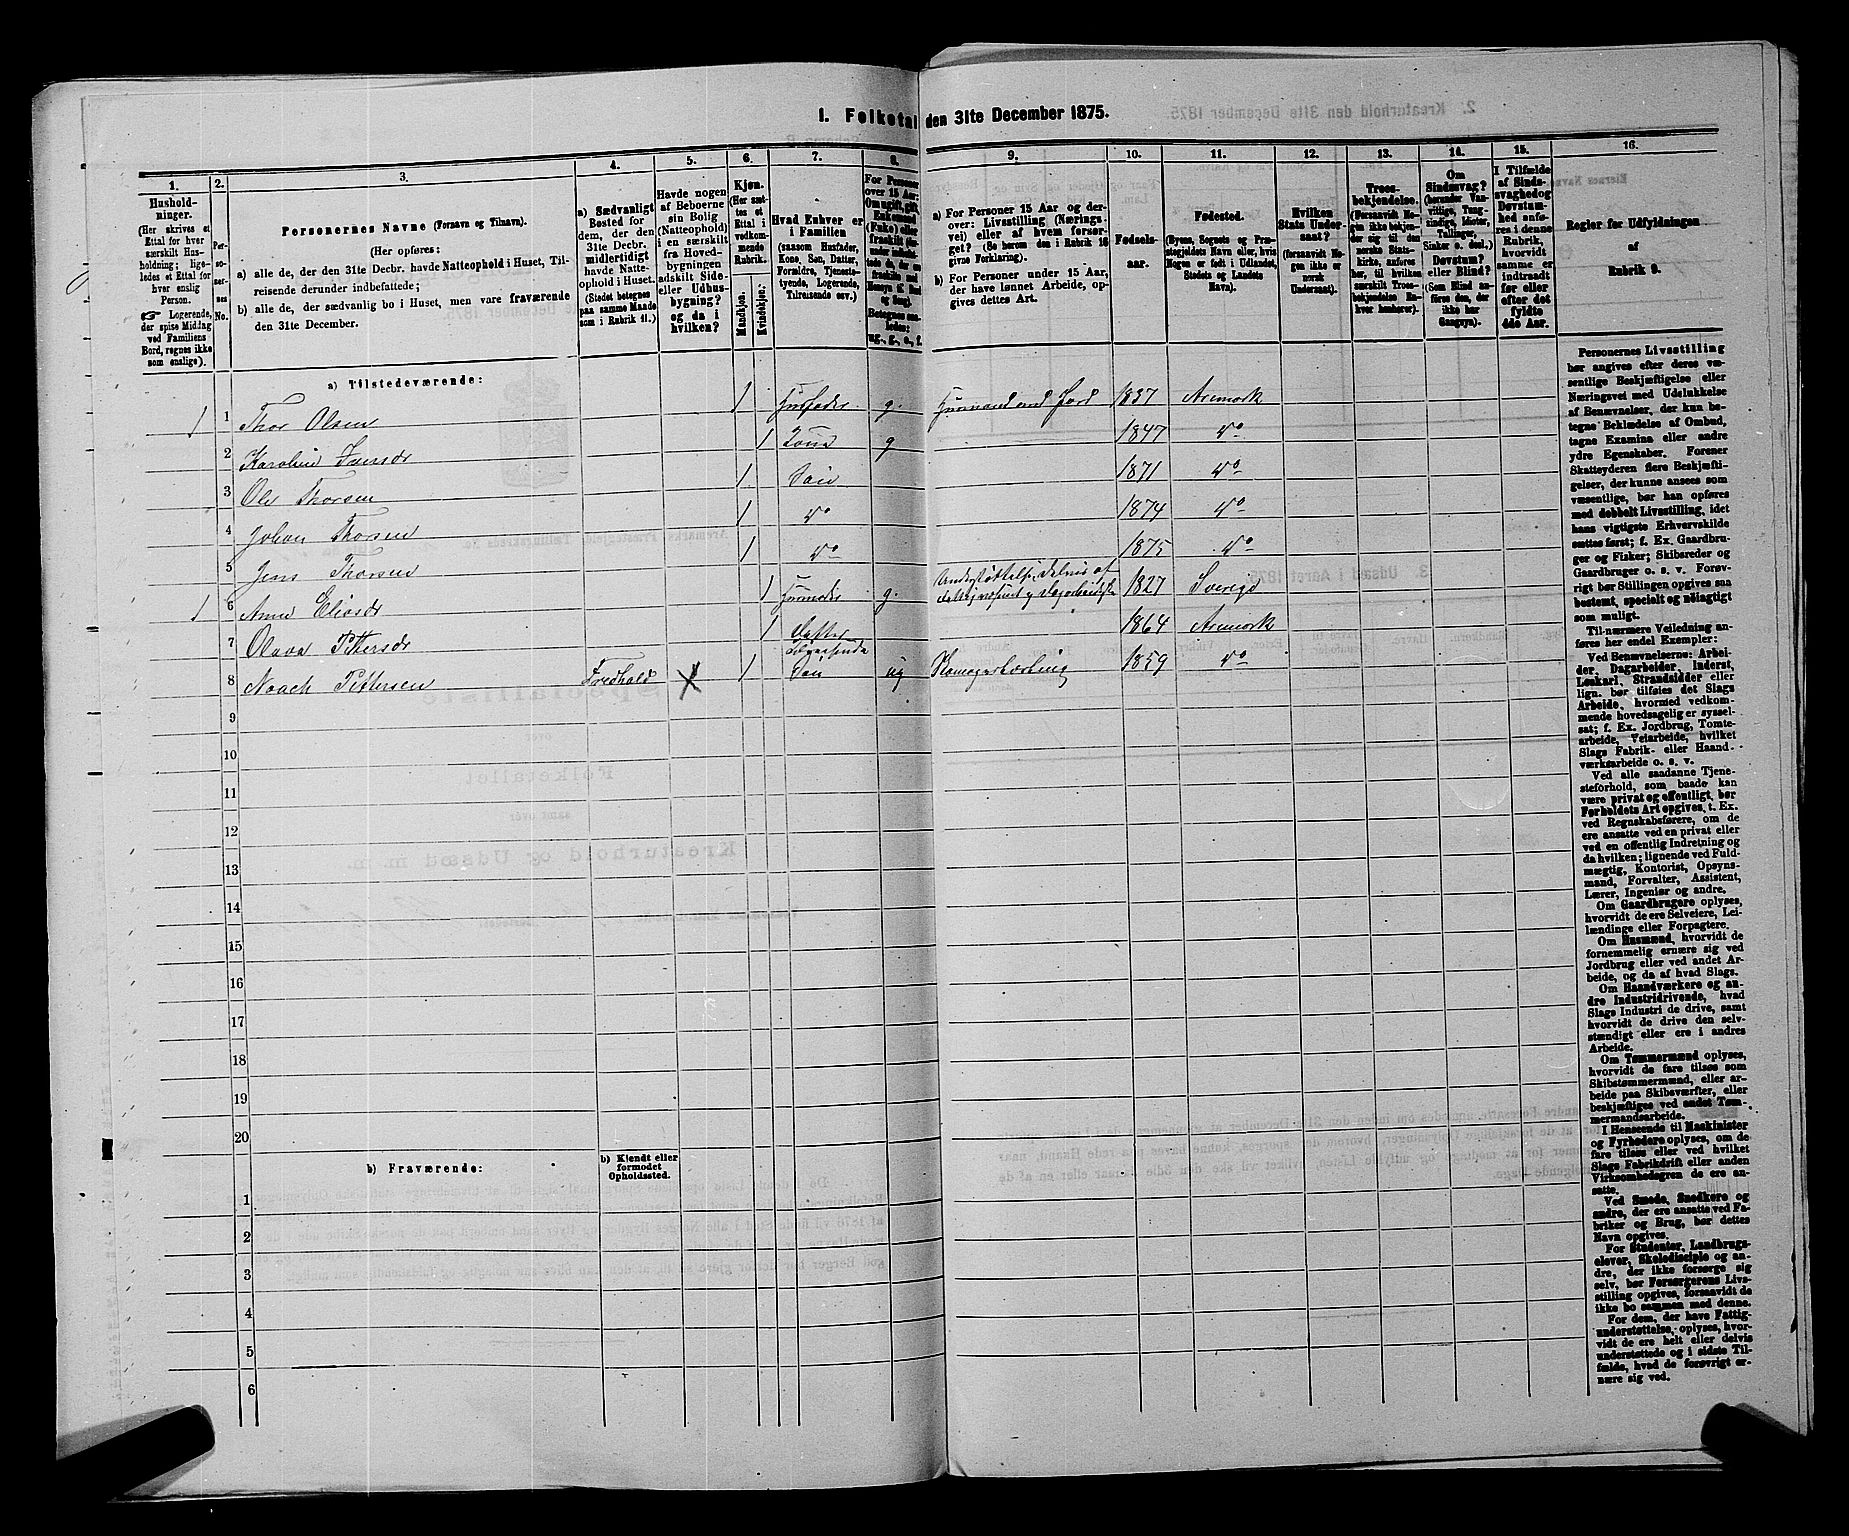 1. Folketal den 31te December 1875.
1. 2. 3. 4. 5. 6. 7. 8. 9. 10. 11. 12. 13. 14. 15. 16.
Hushold-
ninger.
(Her skrives et
Ettal for hver
særskilt Hus-
holdning; lige-
ledes et Ettal for
hver enslig
Person.
Logerende,
der spise Middag
ved Familiens
Bord, regnes ikke
som enslige).
Per-
so-
ner-
nes
No.
Personernes Navne (Fornavn og Tilnavn).
(Her opføres:
a) alle de, der den 31te Decbr. havde Natteophold i Huset, Til-
reisende derunder indbefattede;
b) alle de, der sædvanlig bo i Huset, men vare fraværende
den 31te December.
a) Sædvanligt
Bosted for
dem, der den
31te Decbr.
midlertidigt
havde Natte-
ophold i Huset.
(Stedet betegnes
paa samme Maade
som i Rubrik 11.)
Havde nogen
af Beboerne
sin Bolig
(Natteophold)
i en særskilt
fra Hoved-
bygningen
adskilt Side-
eller Udhus-
bygning?
og da i
hvilken?
Kjøn.
(Her sæt-
tes et
Ettal i
vedkom-
mende
Rubrik.
Mandkjøn.
Kvindekjøn.
Hvad Enhver er
i Familien
(saasom Husfader,
Kone, Søn, Datter,
Forældre, Tjeneste-
tyende, Logerende,
Tilreisende osv.)
For Personer
over 15 Aar:
Om ugift, gift,
Enkemand
(Enke) eller
fraskilt
ug., g., e., f.
a) For Personer 15 Aar og der-
over: Livsstilling (Nærings-
vei) eller af hvem forsør-
get? (Se herom den i Rubrik 16
givne Forklaring).
b) For Personer under 15 Aar,
der have lønnet Arbeide, op-
gives dettes Art.
Fødsels-
aar.
Fødested.
(Byens, Sognets og Præ-
stegjeldets Navn eller, hvis
Nogen er født i Udlandet,
Stedets og Landets
Navn).
Hvilken
Stats Under-
saat?
(forsaavidt No-
gen ikke er
norsk
Undersaat).
Troes-
bekjendelse.
(Forsaavidt No-
gen ikke bekjen-
der sig til den
norske Stats-
kirke, anføres
her, til hvilken
særskilt Troes-
bekjendelse En-
hver henhører).
Om
Sindssvag?
(herunder Van-
vittige, Tung-
sindige, Idioter,
Tullinger,
Sinker o. desl.)
Døvstum?
eller Blind?
(Som Blind an-
føres den, der
ikke har
Gangsyn).
I Tilfælde
af Sinds-
svaghed og
Døvstum-
hed anfø-
res i denne
Rubrik,
hvorvidt
samme er
indtraadt
før eller
efter det
fyldte
4de Aar.
Regler for Udfyldningen
af
Rubrik 9.
a) Tilstedeværende:
1 1 Thor Olsen 1 Husfader g. Husmand med Jord 1837 Aremark
2 Karolin Iversdr 1 Kone g 1847 do
3 Ole Thorsen 1 Søn 1871 do
4 Johan Thorsen 1 do 1874 do
5 Jens Thorsen 1 do 1875 do
1 6 Anne Eliasdr 1 Husmoder g. 1827 Sverige
7 Olava Pettersdr 1 Datter 1864 Aremark
8 Noach Pettersen Fredhald X 1 Søn ug 1859 do
9
10
11
12
13
14
15
16
17
18
19
20
b) Fraværende:
b) Kjendt eller
formodet
Opholdssted.
1
2
3
4
5
6
Personernes Livsstilling
bør angives efter deres væ-
sentlige Beskjæftigelse eller
Næringsvei med Udelukkelse
af Benævnelser, der kun be-
tegne Beklædelse af Ombud,
tagne Examina eller andre
ydre Egenskaber. Forener
Skatteyderen flere Beskjæfti-
gelser, der kunne ansees som
væsentlige, bør han opføres
med dobbelt Livsstilling, idet
hans vigtigste Erhvervskilde
sættes først; f. Ex. Gaardbru-
ger og Fisker; Skibsreder og
Gaardbruger o. s. v. Forøv-
rigt bør Stillingen opgives saa
bestemt, specielt og nøiagtigt
som muligt.
Til nærmere Veiledning an-
føres her endel Exempler:
Ved Benævnelserne: Arbei-
der, Dagarbeider, Inderst,
Løskarl, Strandsidder eller
lign. bør tilføies det Slags
Arbeide, hvormed vedkom-
mende hovedsagelig er syssel-
sat; f. Ex. Jordbrug, Tomte-
arbeide, Veiarbeide, hvilket
Slags Fabrik- eller Haand-
værksarbeide o. s. v.
Ved alle saadanne Tjene-
steforhold, som baade kan
være privat og offentligt, bør
Forholdets Art opgives, t. Ex.
ved Regnskabsførere, om de
ere ansatte ved en privat eller
ved en offentlig Indretning og
da hvilken; lignende ved Fuld-
mægtig, Kontorist, Opsyns-
mand, Forvalter, Assistent,
Lærer, Ingeniør og andre.
Om Gaardbrugere oplyses,
hvorvidt de ere Selveiere, Lei-
lændinge eller Forpagtere.
Om Husmænd, hvorvidt de
fornemmelig ernære sig ved
Jordbrug eller ved andet Ar-
beide, og da af hvad Slags.
Om Haandværkere og an-
dre Industridrivende, hvad
Slags Industri de drive, samt
hvorvidt de drive den selv-
stændigt eller ere i andres
Arbeide.
Om Tømmermænd oplyses,
hvorvidt de fare tilsøs som
Skibstømmermænd, eller ar-
beide paa Skibsværfter, eller
beskjæftiges ved andet Tøm-
mermandsarbeide.
I Henseende til Maskinister
og Fyrbødere oplyses, om de
fare tilsøs eller ved hvilket
Slags Fabrikdrift eller anden
Virksomhedsgren de ere an-
satte.
Ved Smede, Snedkere og
andre, der ere ansatte ved Fa-
briker og Brug, bør dettes
Navn opgives.
For Studenter, Landbrugs-
elever, Skoledisciple og an-
dre, der ikke forsørge sig
selv, bør Forsørgerens Livs-
stilling opgives, forsaavidt de
ikke bo sammen med denne.
For dem, der have Fattig-
understøttelse, oplyses, hvor-
vidt de ere helt eller delvis
understøttede og i sidste Til-
fælde, hvad de forøvrigt er-
nære sig ved.